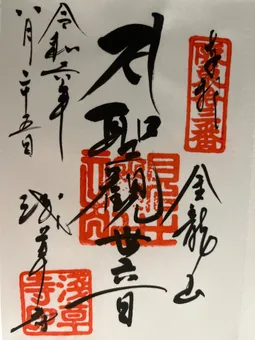 奉拝
坂東十三番
金龍山
聖觀世音
浅草寺
令和六年
八月二十五日